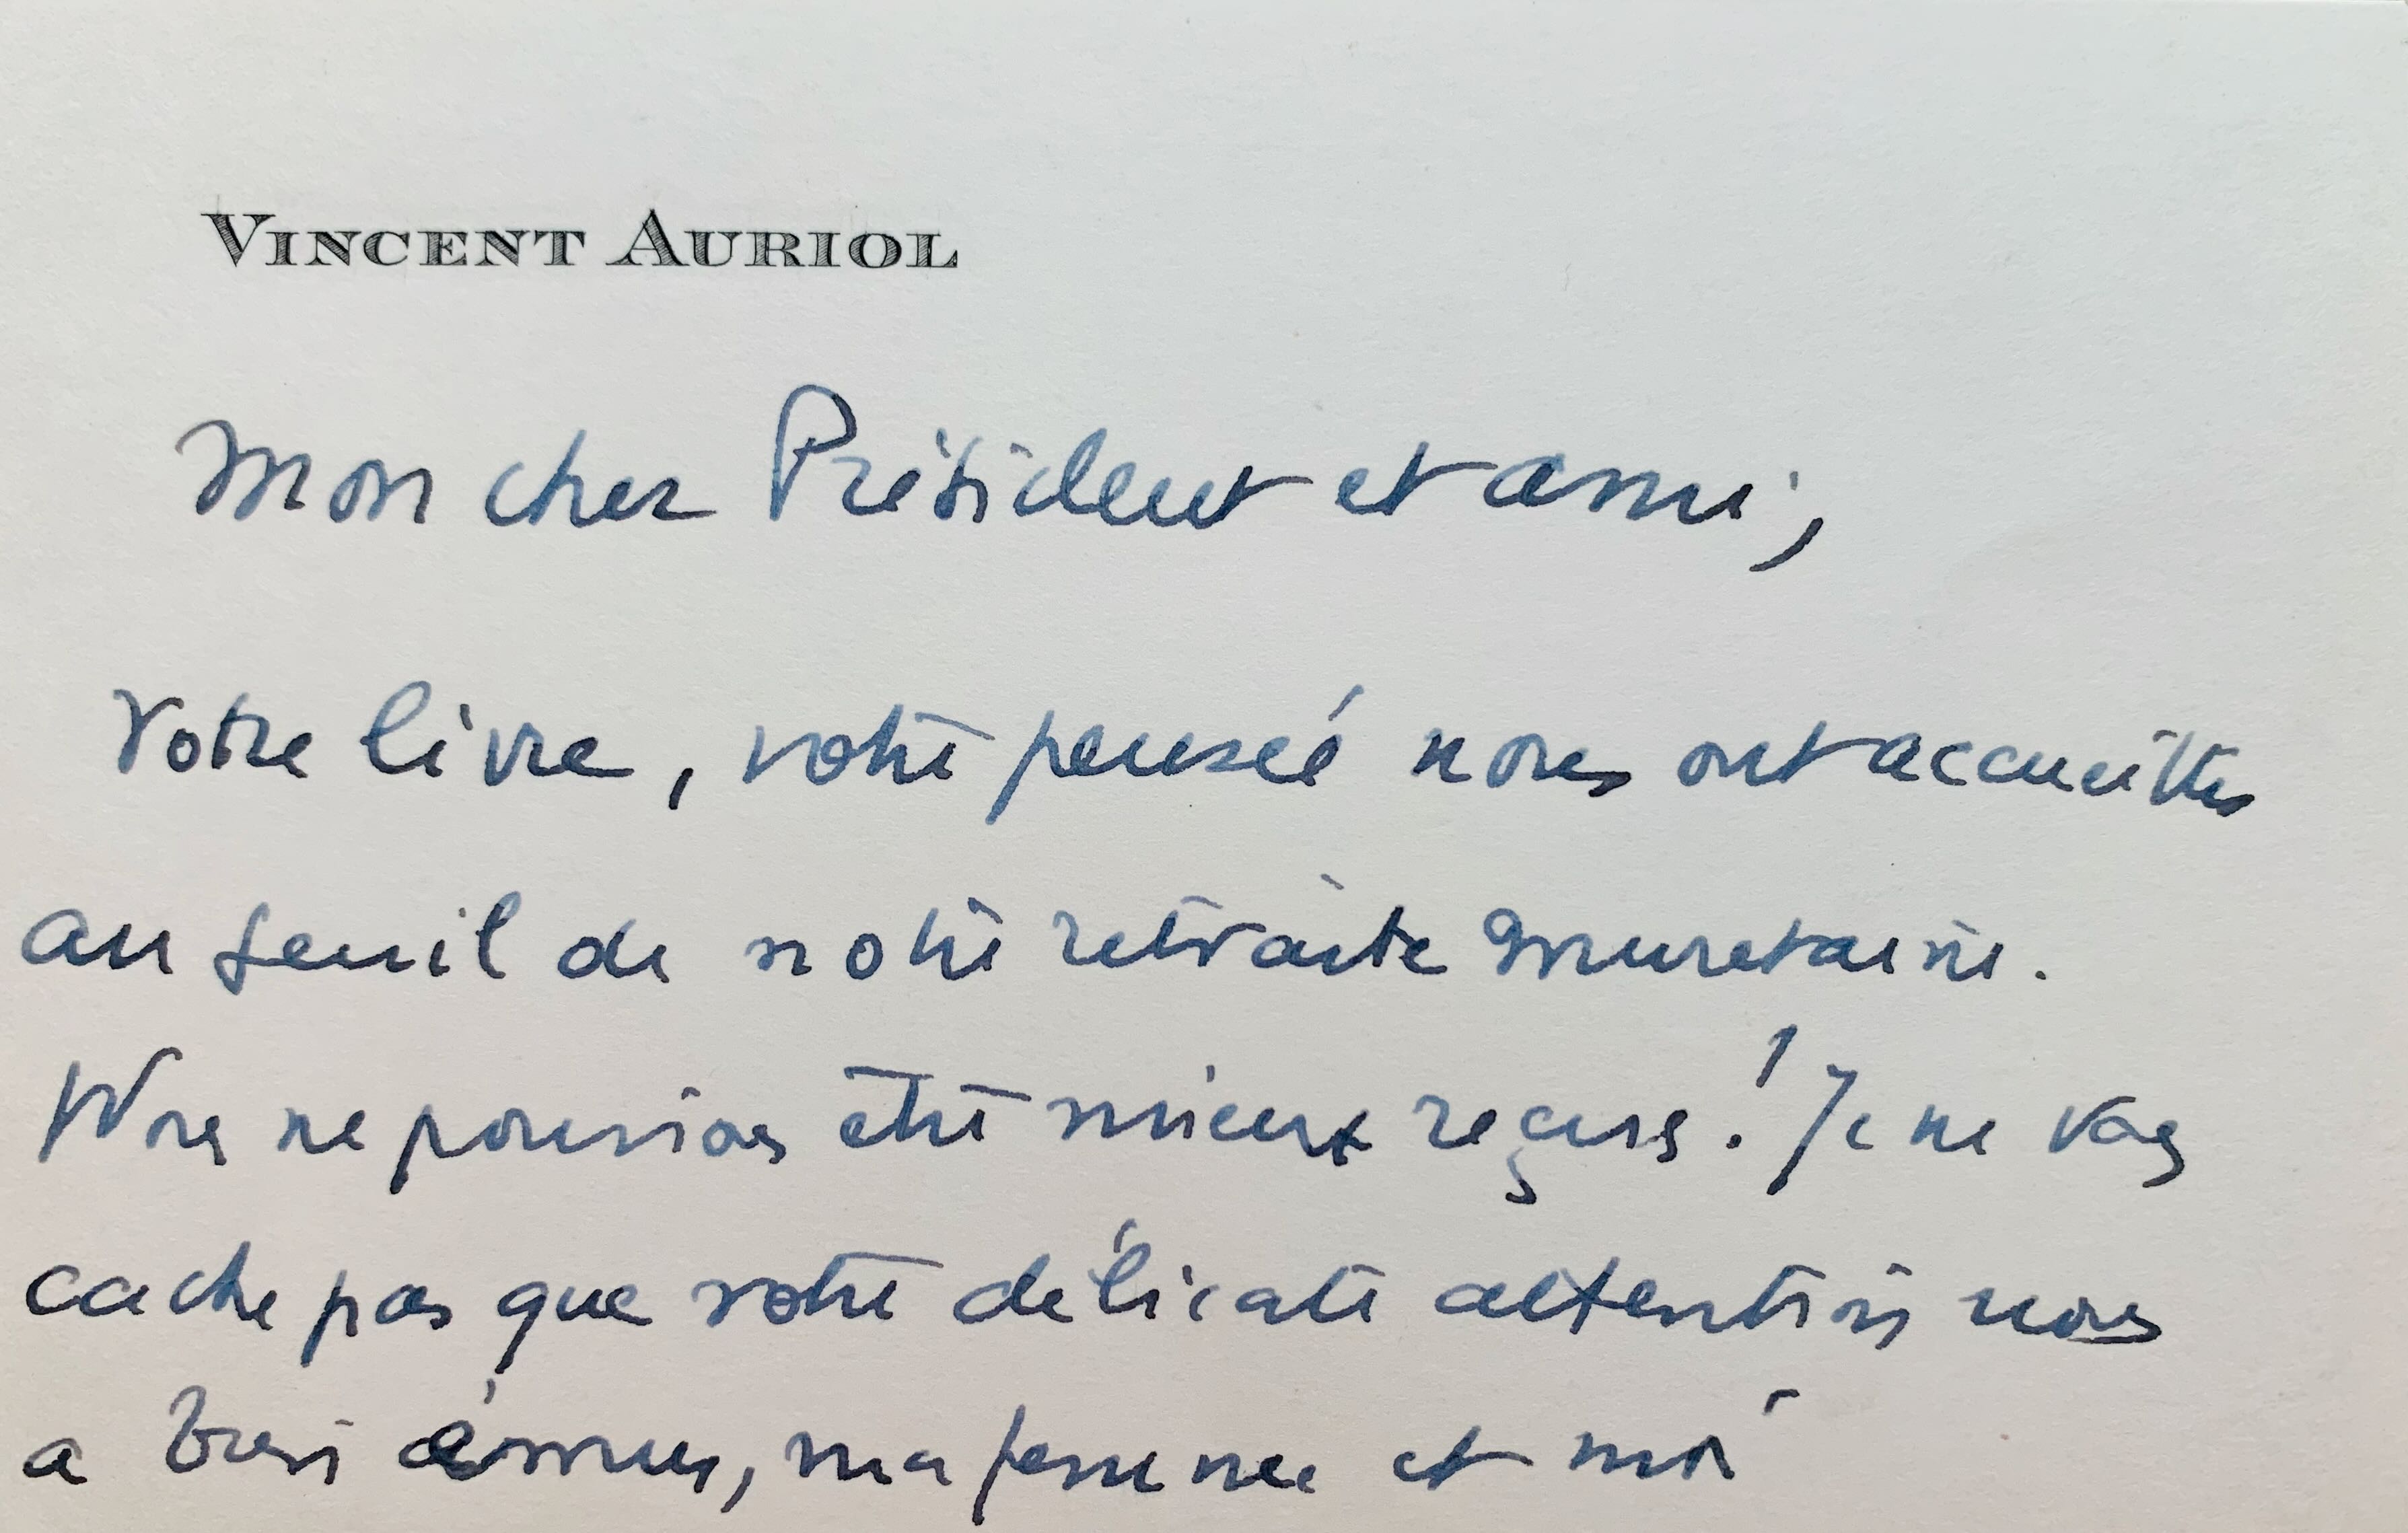 VINCENT AURIOL
Mon cher Président et ami,
Votre livre, votre pensée nous ont accueillis
au seuil de notre retraite muretaine.
Nous ne pouvions être mieux reçus ! Je ne vous
cache pas que votre délicate attention nous
a bien émus, ma femme et moi